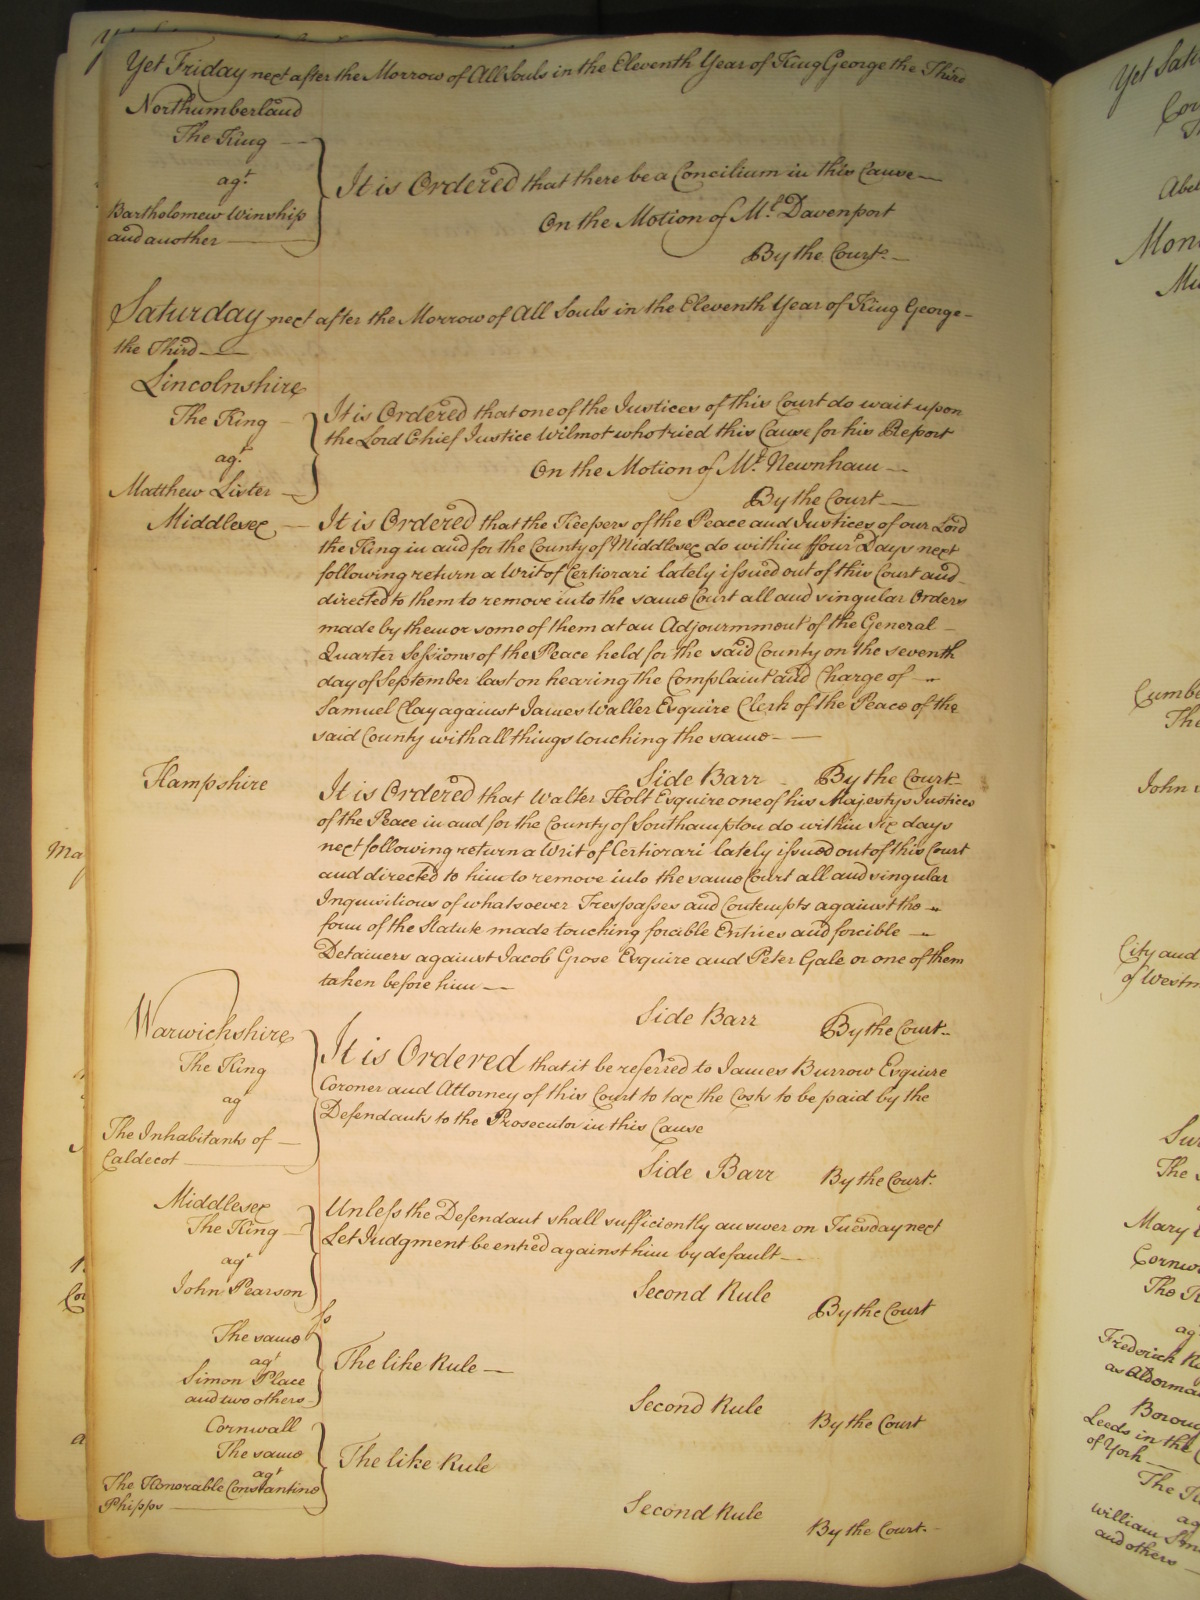 Yet Friday next after the Morrow of All Souls in the Eleventh Year of King George the Third
Northumberland
The King
agt
Bartholomew Winship
and another
It is Ordered that there be a Concilium in this Cause
On the Motion of Mr. Davenport
By the Court
Saturday next after the Morrow of All Souls in the Eleventh Year of King George
the Third
Lincolnshire
The King
agt
Matthew Lister
It is Ordered that one of the Justices of this Court do wait upon
the Lord Chief Justice Wilmot who tried this Cause for his Report
On the Motion of Mr. Newnham
By the Court
Middlesex
It is Ordered that the Keepers of the Peace and Justices of our Lord
the King in and for the County of Middlesex do within ffour Days next
following return a Writ of Certiorari lately issued out of this Court and
directed to them to remove into the same Court all and singular Orders
made by them or some of them at an Adjournment of the General
Quarter Sessions of the Peace held for the said County on the seventh
day of September last on hearing the Complaint and Charge of
Samuel Clay against James Waller Esquire Clerk of the Peace of the
said County with all things touching the same
Side Barr By the Court
Hampshire
It is Ordered that Walter Holt Esquire one of his Majestys Justices
of the Peace in and for the County of Southampton do within six days
next following return a Writ of Certiorari lately issued out of this Court
and directed to him to remove into the same Court all and singular
Inquisitions of whatsoever Trespasses and Contempts against the
form of the Statute made touching forcible Entries and forcible
Detainers against Jacob Grose Esquire and Peter Gale or one of them
taken before him
Side Barr By the Court
Warwickshire
The King
agt
The Inhabitants of
Caldecot
It is Ordered that it be referred to James Burrow Esquire
Coroner and Attorney of this Court to tax the Costs to be paid by the
Defendants to the Prosecutor in this Cause
Side Barr By the Court
Middlesex
The King
agt
John Pearson
Unless the Defendant shall sufficiently answer on Tuesday next
Let Judgment be entred against him by default
Second Rule
By the Court
ss
The same
agt
Simon Place
and two others
The like Rule
Second Rule
By the Court
Cornwall
The same
agt
The Honorable Constantine
Phipps
The like Rule
Second Rule
By the Court
Yet
Mon
John
City and
of Westm
The
Mary
Cornw
agt
Frederick
as Alderma
Borou
Leeds in the
of York
The
William
and others